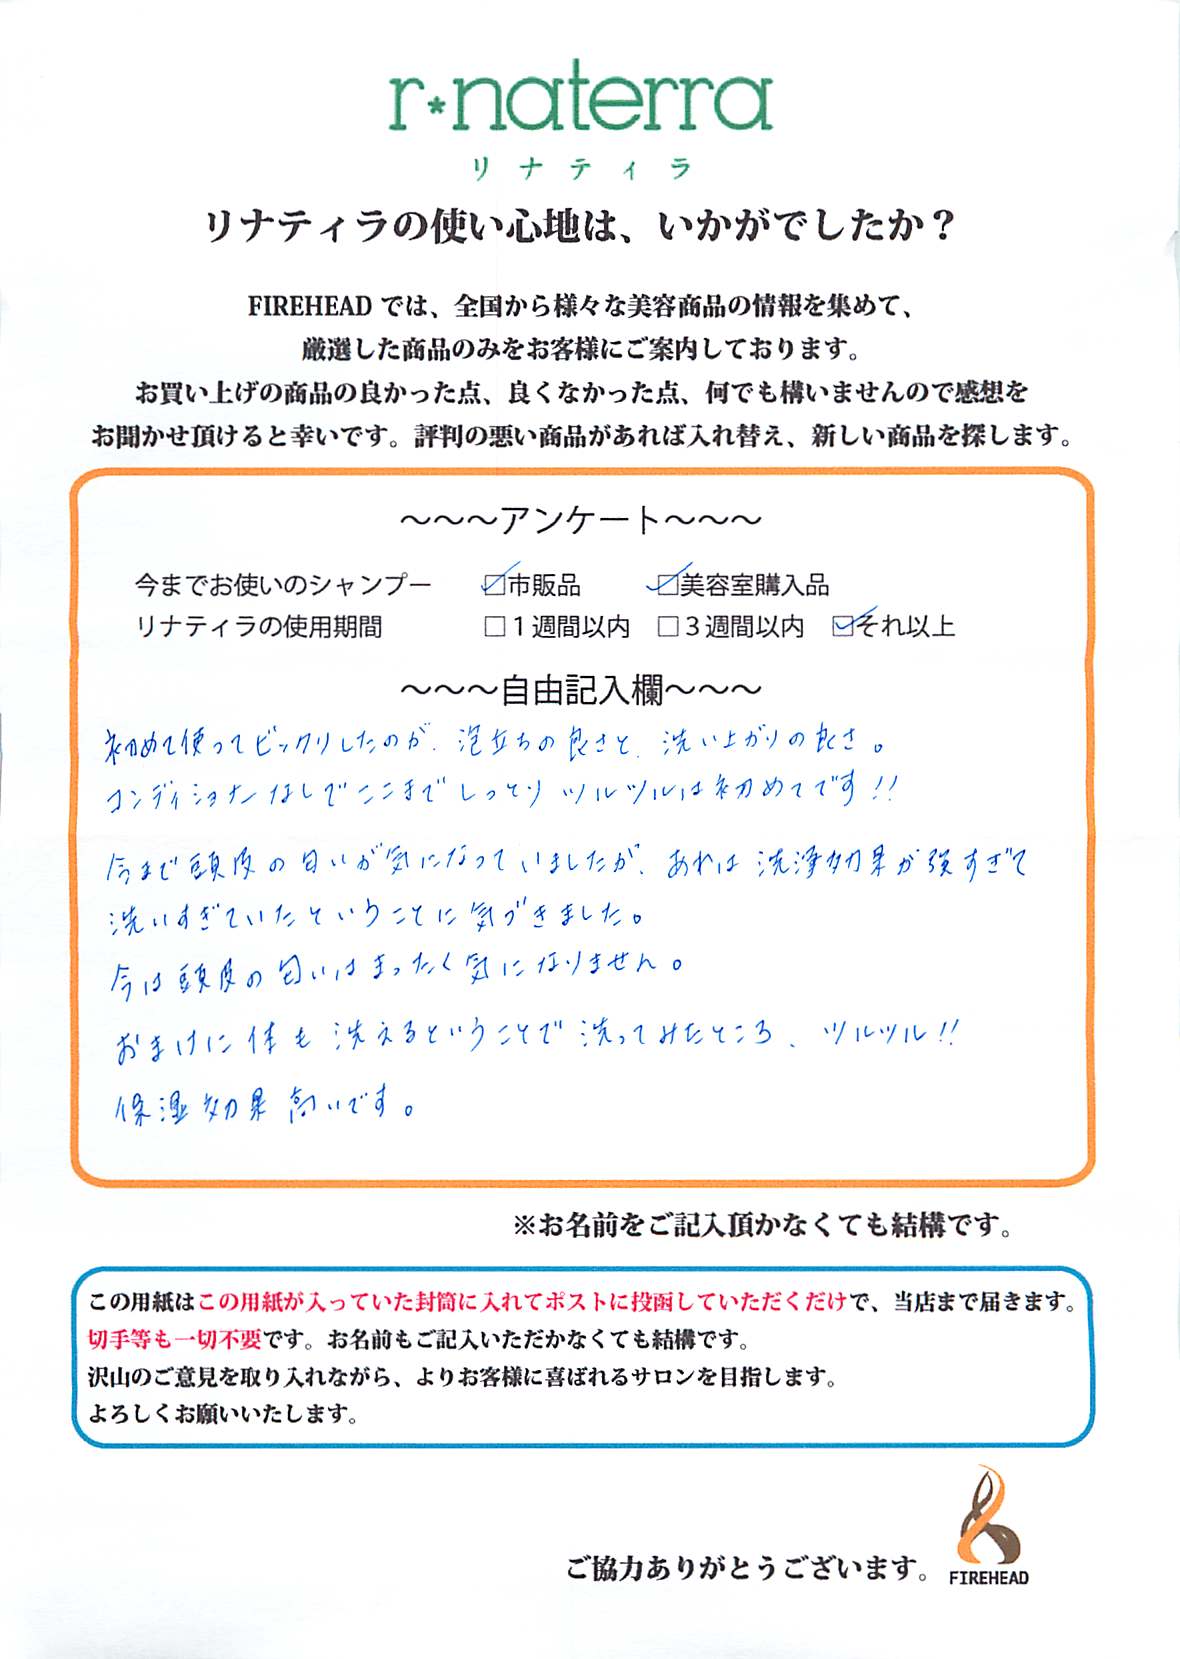 r*naterra
リナティラ
リナティラの使い心地は、いかがでしたか？
FIREHEADでは、全国から様々な美容商品の情報を集めて、
厳選した商品のみをお客様にご案内しております。
お買い上げの商品の良かった点、良くなかった点、何でも構いませんので感想を
お聞かせ頂けると幸いです。評判の悪い商品があれば入れ替え、新しい商品を探します。
～～～アンケート～～～
今までお使いのシャンプー ☑市販品 ☑美容室購入品
リナティラの使用期間 □１週間以内 □３週間以内 ☑それ以上
～～～自由記入欄～～～
初めて使ってビックリしたのが、泡立ちの良さと、洗い上がりの良さ。
コンディショナーなしでここまでしっとりツルツルは初めてです!!
今まで頭皮の匂いが気になっていましたが、あれは洗浄効果が強すぎて
洗いすぎていたということに気づきました。
今は頭皮の匂いはまったく気になりません。
おまけに体も洗えるということで洗ってみたところ、ツルツル!!
保湿効果高いです。
※お名前をご記入頂かなくても結構です。
この用紙はこの用紙が入っていた封筒に入れてポストに投函していただくだけで、当店まで届きます。
切手等も一切不要です。お名前もご記入いただかなくても結構です。
沢山のご意見を取り入れながら、よりお客様に喜ばれるサロンを目指します。
よろしくお願いいたします。
ご協力ありがとうございます。
FIREHEAD